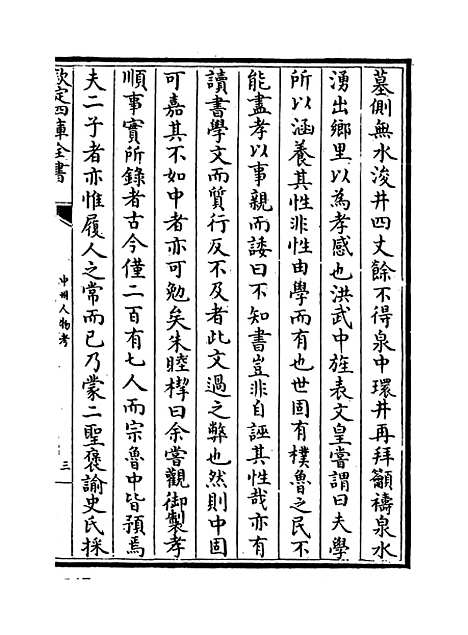 墓側無水浚井四丈餘不得泉中環井再拜籲禱泉水
湧出鄉里以為孝感也洪武中旌表文皇嘗謂曰夫學
所以涵養其性非性由學而有也世固有樸魯之民不
能盡孝以事親而諉曰不知書豈非自誣其性哉亦有
讀書學文而質行反不及者此文過之弊也然則中固
可嘉其不如中者亦可勉矣朱睦㮮曰余嘗觀御製孝
順事實所錄者古今僅二百有七人而宗魯中皆預焉
夫二子者亦惟履人之常而已乃蒙二聖褒諭史氏採
欽定四庫全書
中州人物考
三